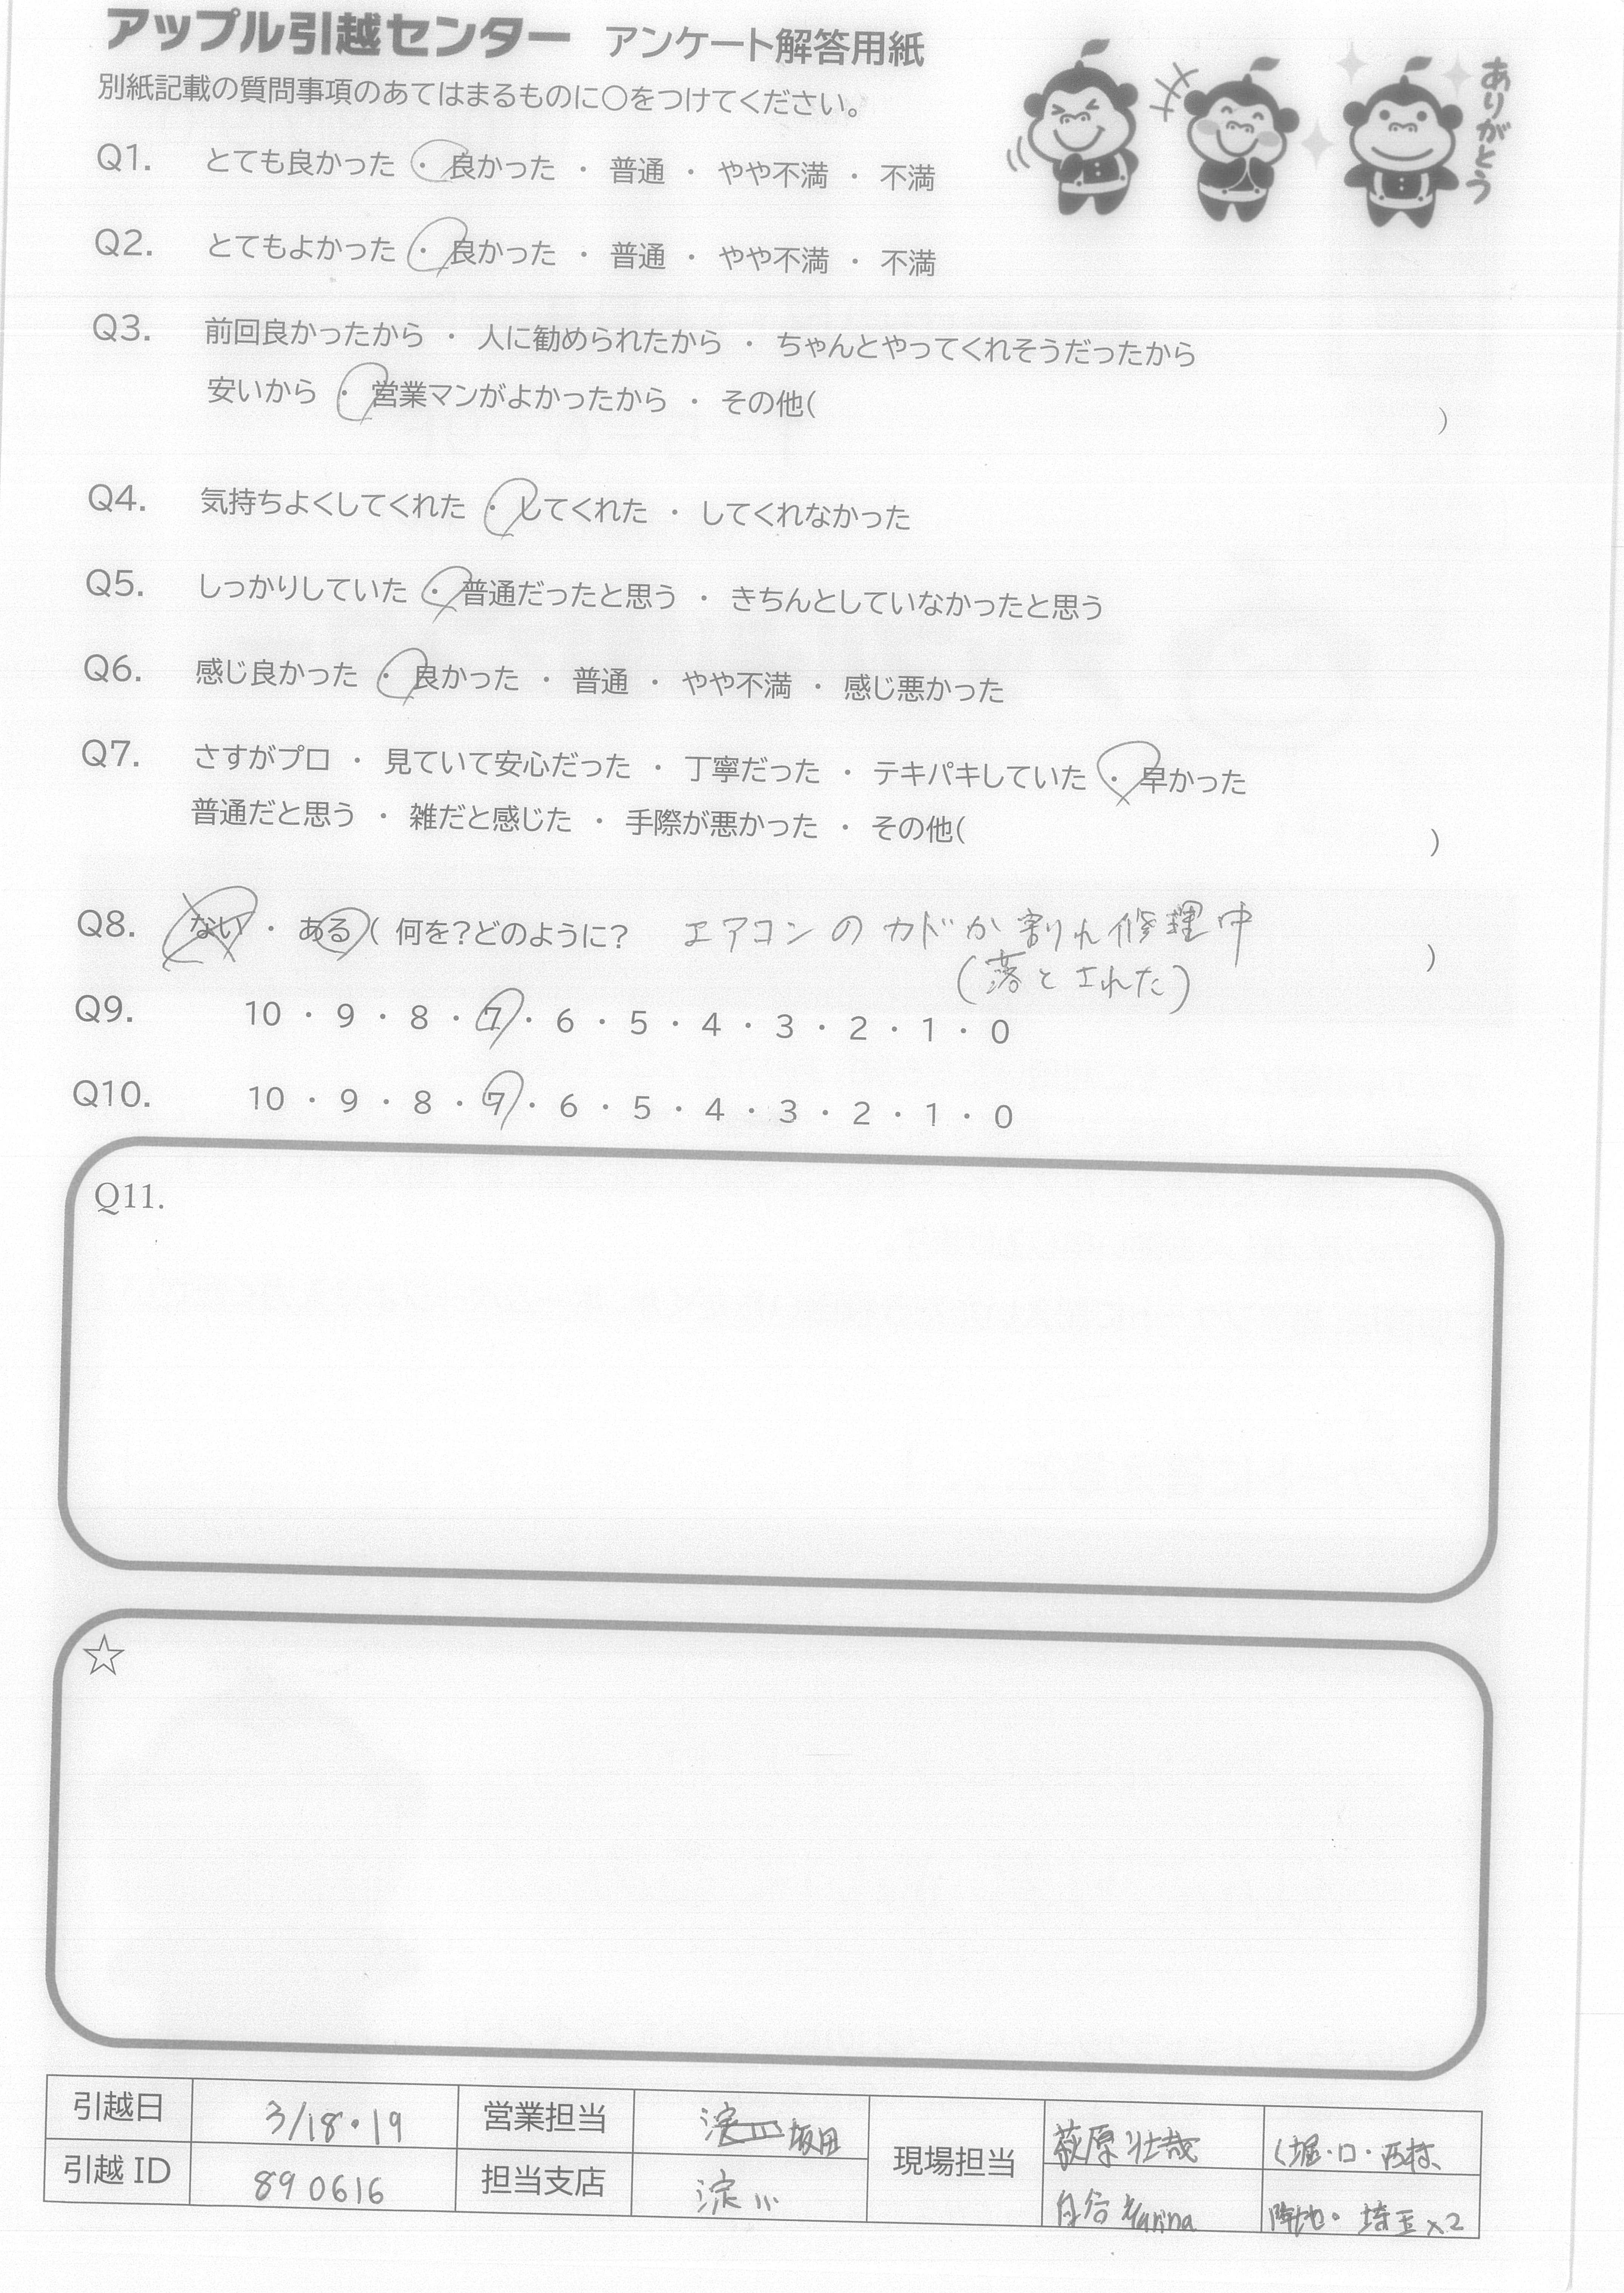 アップル引越センター アンケート解答用紙
別紙記載の質問事項のあてはまるものに〇をつけてください。
ありがとう
Q1. とても良かった ・ 良かった ・ 普通 ・ やや不満 ・ 不満
Q2. とてもよかった ・ 良かった ・ 普通 ・ やや不満 ・ 不満
Q3. 前回良かったから ・ 人に勧められたから ・ ちゃんとやってくれそうだったから
安いから ・ 営業マンがよかったから ・ その他( )
Q4. 気持ちよくしてくれた ・ してくれた ・ してくれなかった
Q5. しっかりしていた ・ 普通だったと思う ・ きちんとしていなかったと思う
Q6. 感じ良かった ・ 良かった ・ 普通 ・ やや不満 ・ 感じ悪かった
Q7. さすがプロ ・ 見ていて安心だった ・ 丁寧だった ・ テキパキしていた ・ 早かった
普通だと思う ・ 雑だと感じた ・ 手際が悪かった ・ その他( )
Q8. ない ・ ある ( 何を?どのように? エアコンの カドが 割れ 修理中 )
(落とされた)
Q9. 10 ・ 9 ・ 8 ・ 7 ・ 6 ・ 5 ・ 4 ・ 3 ・ 2 ・ 1 ・ 0
Q10. 10 ・ 9 ・ 8 ・ 7 ・ 6 ・ 5 ・ 4 ・ 3 ・ 2 ・ 1 ・ 0
Q11.
☆
引越日 3/18・19 営業担当 坂田 現場担当 萩原 壮哉 堀・口・西村、
引越ID 890616 担当支店 淀川 埼玉x2